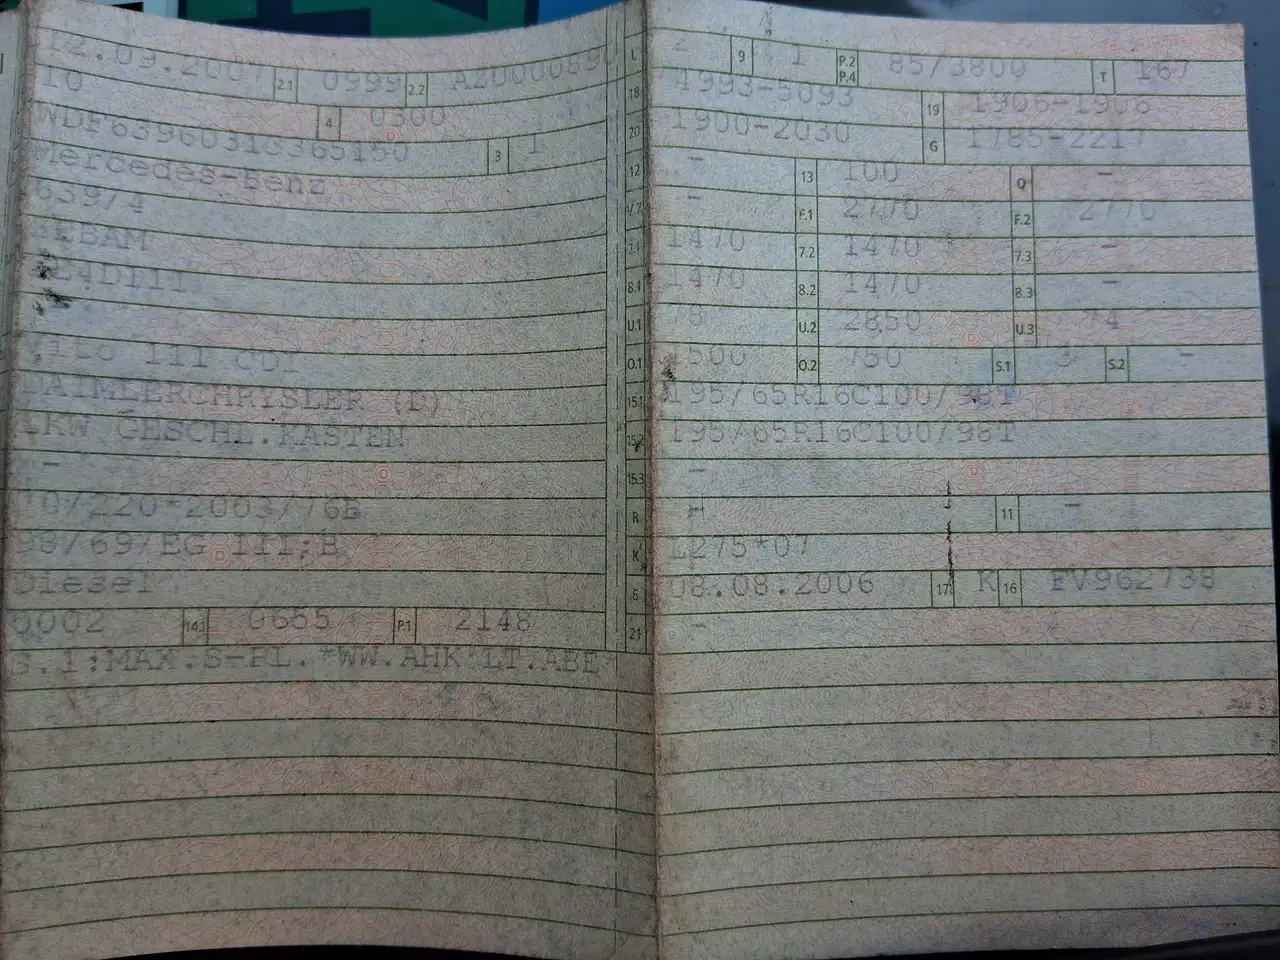 12.09.2007 2.1 0999 2.2 AZ0000890
10 4 0300
WDF63960313365150 3 1
Mercedes-Benz
639/4
Vito 111 CDI
DAIMLERCHRYSLER (D)
LKW GESCHL.KASTEN
-
70/220*2003/76B
98/69/EG III;B
Diesel
0002 14.1 0655 P.1 2148
S.1:MAX.S-PL.*WW.AHK LT.ABE
L 2 9 1 P.2 P.4 85/3800 T 167
18 4993-5093 19 1906-1906
20 1900-2030 G 1785-2217
12 - 13 100 Q -
V.7 - F.1 2770 F.2 2770
7.1 1470 7.2 1470 7.3 -
8.1 1470 8.2 1470 8.3 -
U.1 78 U.2 2850 U.3 74
O.1 O.2 750 S.1 3 S.2 -
15.1 195/65R16C100/98T
15.2 195/65R16C100/98T
15.3 -
R - 11 -
K L275*07
6 08.08.2006 17 K 16 FV962738
21 -